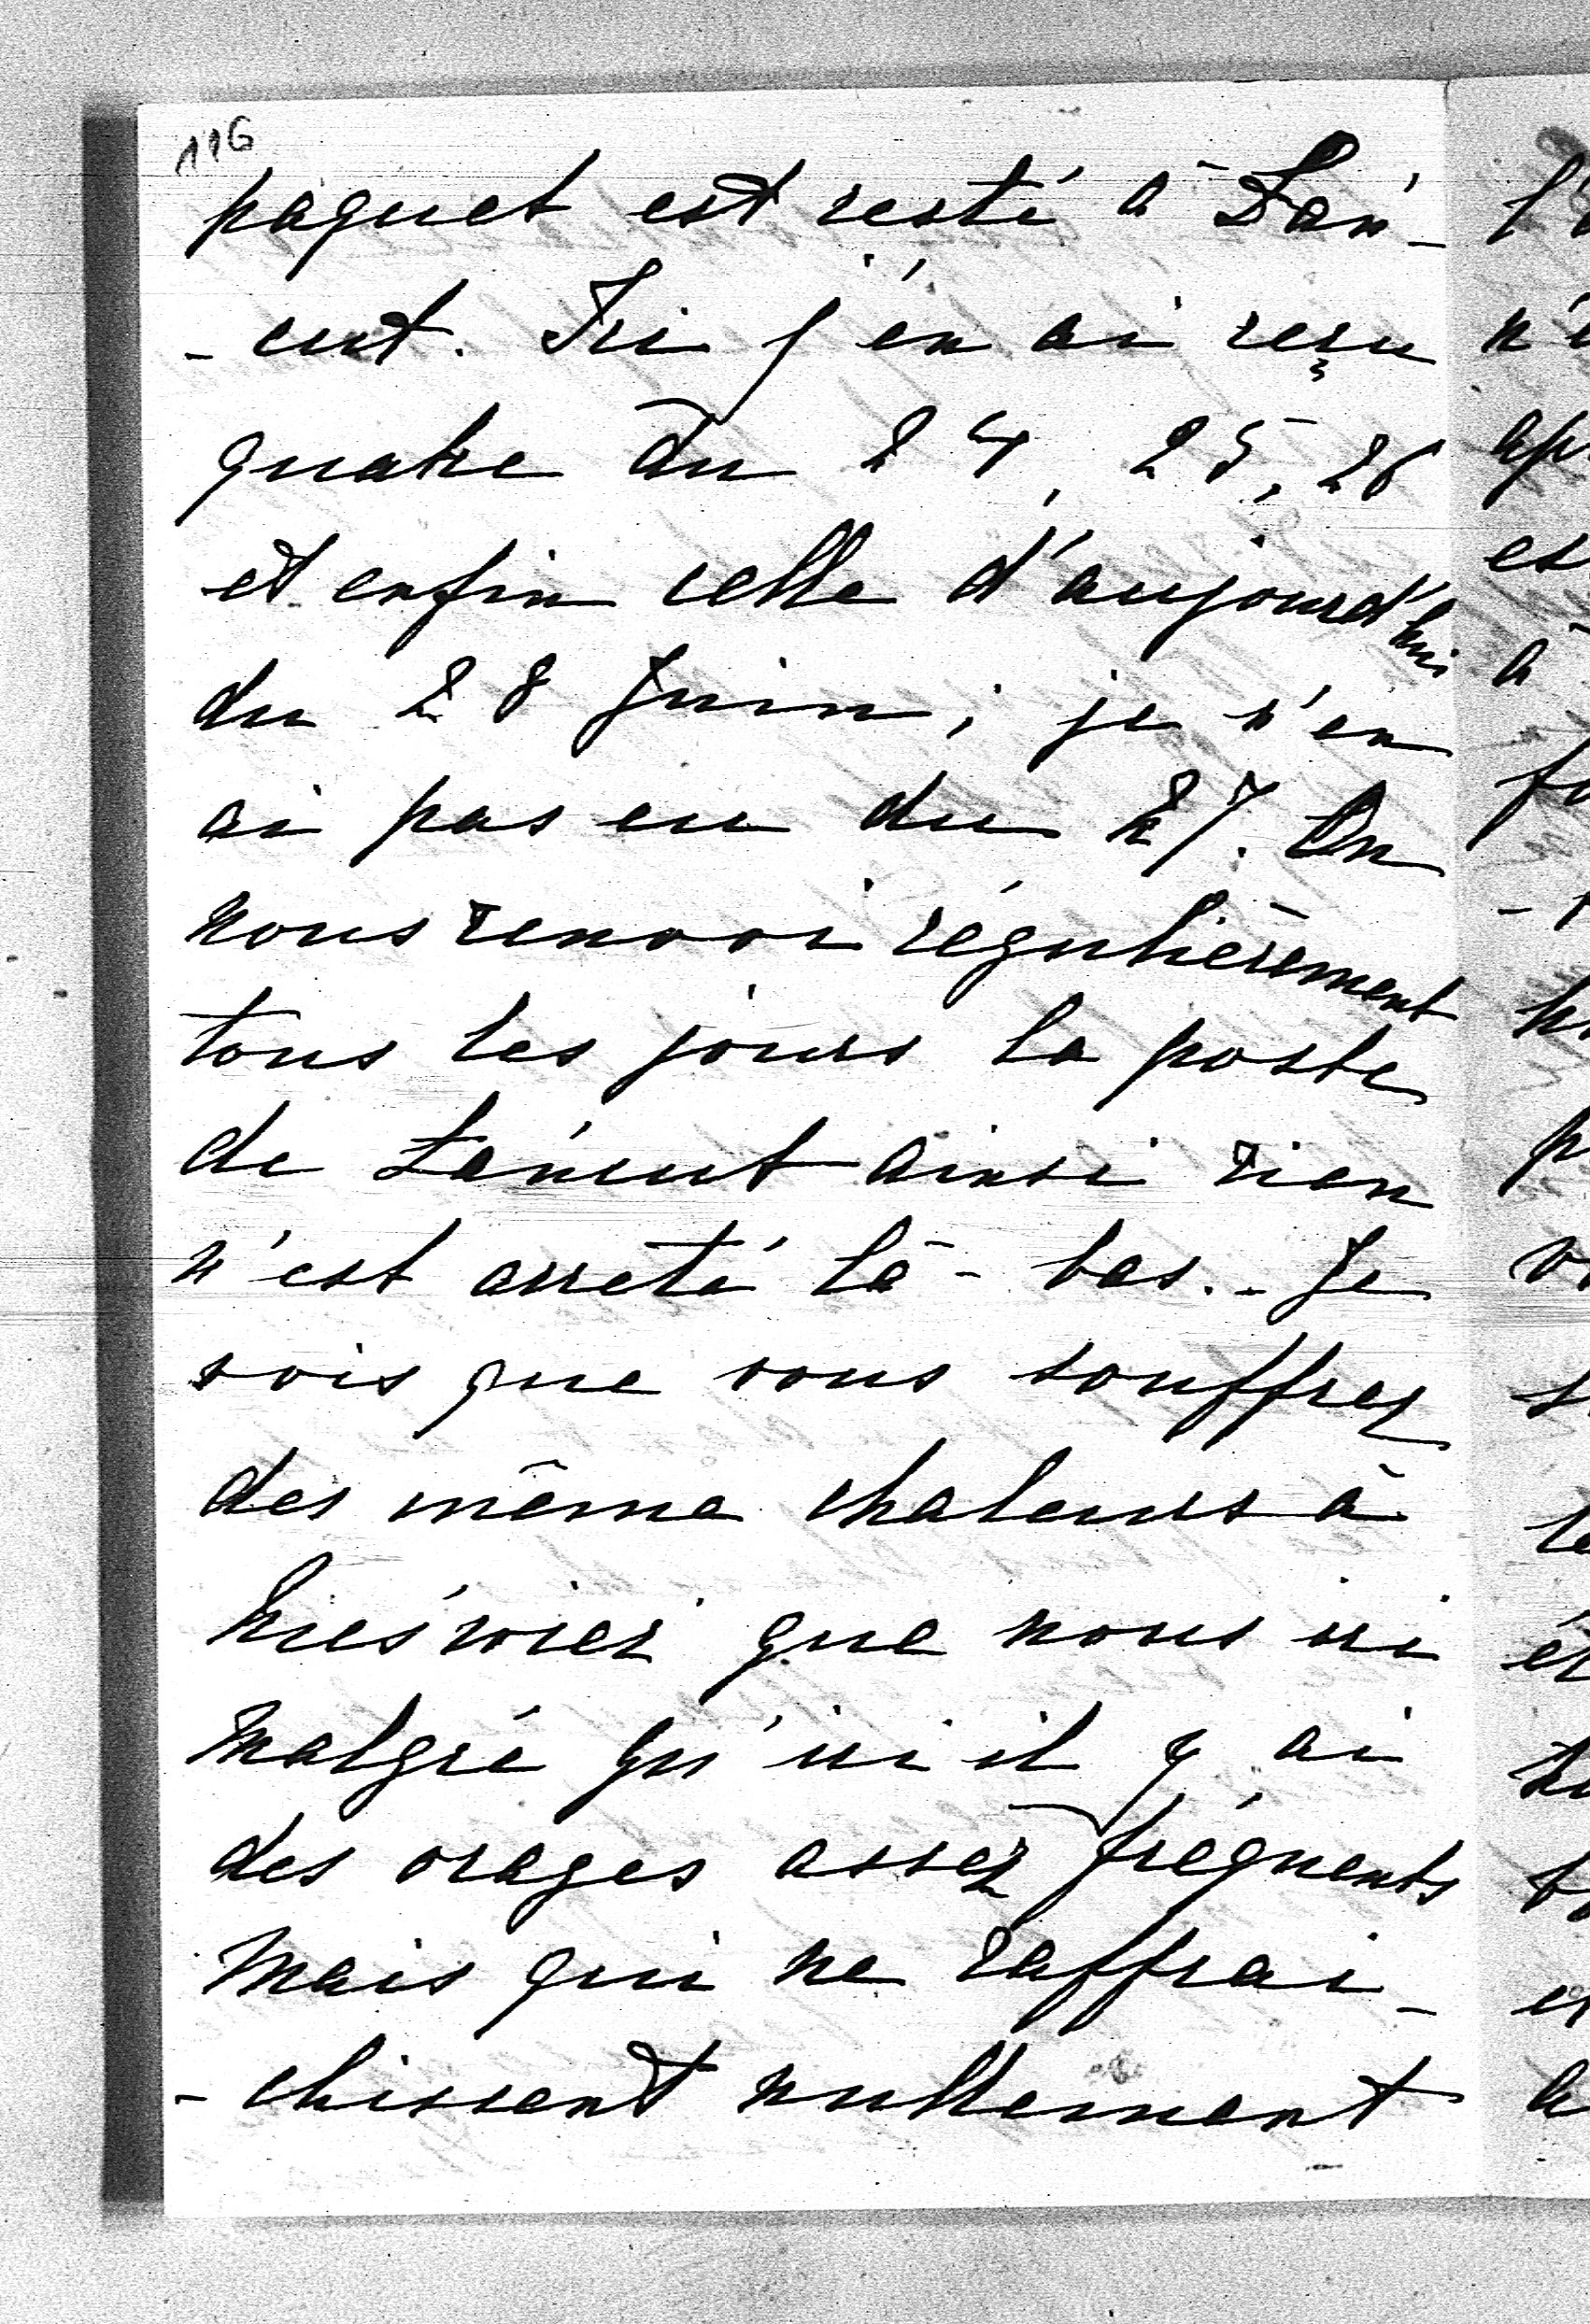 116
paquet est resté à Łań-
- cut. Ici j'en ai reçu
quatre du 24, 25, 26
et enfin celle d'aujourd'hui
du 28 Juin; je n'en
ai pas eu du 27. On
nous renvoi régulièrement
tous les jours la poste
de Łańcut ainsi rien
n'est arreté là-bas. - Je
vois que vous souffrez
des même chaleurs à
Nieświez que nous ici
malgré qu'ici il y ai
des orages assez fréquents
mais qui ne raffrai-
- chissent nullement